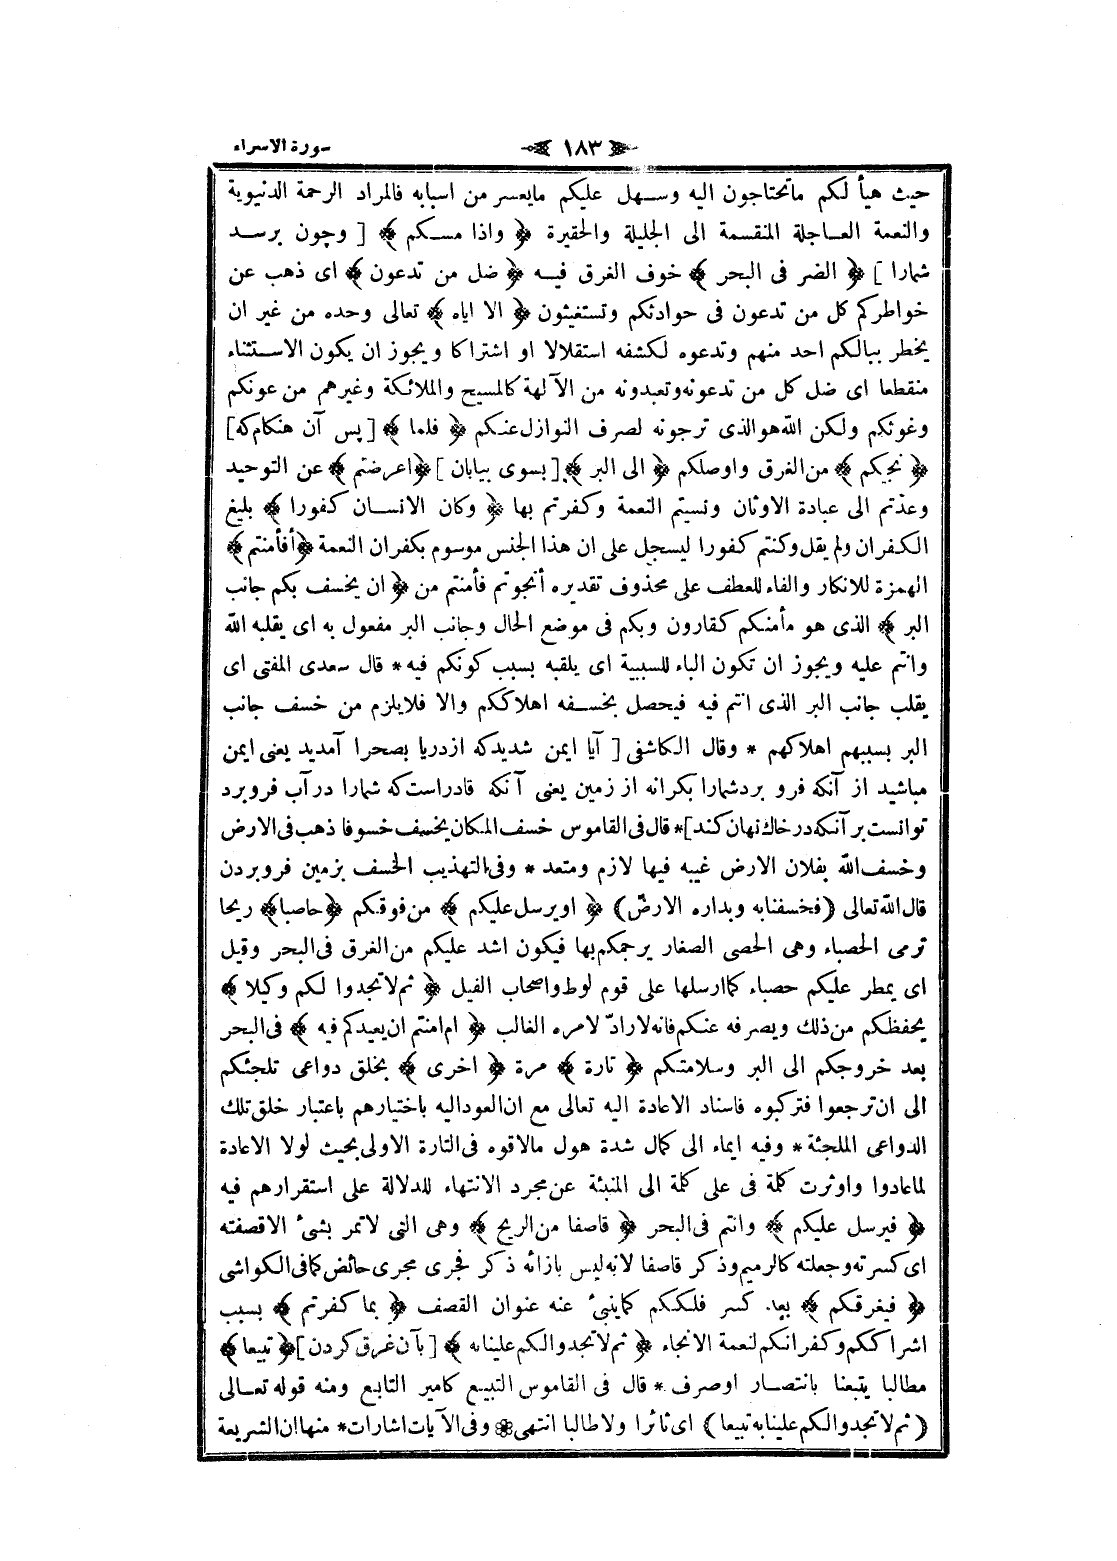 سورة الاسراء ﴿ ١٨٣ ﴾
حيث هيأ لكم ماتحتاجون اليه وسهل عليكم مايعسر من اسبابه فالمراد الرحمة الدنيوية
والنعمة العاجلة المنقسمة الى الجليلة والحقيرة ﴿ واذا مسكم ﴾ [ وچون برسد
شمارا ] ﴿ الضر فى البحر ﴾ خوف الغرق فيه ﴿ ضل من تدعون ﴾ اى ذهب عن
خواطركم كل من تدعون فى حوادثكم وتستغيثون ﴿ الا اياه ﴾ تعالى وحده من غير ان
يخطر ببالكم احد منهم وتدعوه لكشفه استقلالا او اشتراكا ويجوز ان يكون الاستثناء
منقطعا اى ضل كل من تدعونه وتعبدونه من الآلهة كالمسيح والملائكة وغيرهم من عونكم
وغوثكم ولكن الله هو الذى ترجونه لصرف النوازل عنكم ﴿ فلما ﴾ [ پس آن هنكام كه]
﴿ نجيكم ﴾ من الغرق واوصلكم ﴿ الى البر ﴾ [ بسوى بيابان ] ﴿ اعرضتم ﴾ عن التوحيد
وعدتم الى عبادة الاوثان ونسيتم النعمة وكفرتم بها ﴿ وكان الانسان كفورا ﴾ بليغ
الكفران ولم يقل وكنتم كفورا ليسجل على ان هذا الجنس موسوم بكفران النعمة ﴿ أفأمنتم ﴾
الهمزة للانكار والفاء للعطف على محذوف تقديره أنجوتم فأمنتم من ﴿ ان يخسف بكم جانب
البر ﴾ الذى هو مأمنكم كقارون وبكم فى موضع الحال وجانب البر مفعول به اى يقلبه الله
وانتم عليه ويجوز ان تكون الباء للسببية اى يلقبه بسبب كونكم فيه * قال سعدى المفتى اى
يقلب جانب البر الذى انتم فيه فيحصل بخسفه اهلاككم والا فلايلزم من خسف جانب
البر بسببهم اهلاكهم * وقال الكاشفى [ آيا ايمن شديدكه ازدريا بصحرا آمديد يعنى ايمن
مباشيد از آنكه فرو برد شمارا بكرانه از زمين يعنى آنكه قادراست كه شمارا در آب فروبرد
توانست بر آنكه در خاك نهان كند ] * قال فى القاموس خسف المكان يخسف خسوفا ذهب فى الارض
وخسف الله بفلان الارض غيبه فيها لازم ومتعد * وفى التهذيب الخسف بزمين فروبردن
قال الله تعالى (فخسفنابه وبداره الارض) ﴿ اويرسل عليكم ﴾ من فوقكم ﴿ حاصبا﴾ ريحا
ترمى الحصباء وهى الحصى الصغار يرجمكم بها فيكون اشد عليكم من الغرق فى البحر وقيل
اى يمطر عليكم حصباء كما ارسلها على قوم لوط واصحاب الفيل ﴿ ثم لاتجدوا لكم وكيلا ﴾
يحفظكم من ذلك ويصرفه عنكم فانه لارادّ لامره الغالب ﴿ ام امنتم ان يعيدكم فيه ﴾ فى البحر
بعد خروجكم الى البر وسلامتكم ﴿ تارة ﴾ مرة ﴿ اخرى ﴾ بخلق دواعى تلجئكم
الى ان ترجعوا فتركبوه فاسناد الاعادة اليه تعالى مع ان العود اليه باختيارهم باعتبار خلق تلك
الدواعى الملجئة * وفيه ايماء الى كمال شدة هول مالاقوه فى التارة الاولى بحيث لولا الاعادة
لماعادوا واوثرت كلمة فى على كلمة الى المنبئة عن مجرد الانتهاء للدلالة على استقرارهم فيه
﴿ فيرسل عليكم ﴾ وانتم فى البحر ﴿ قاصفا من الريح ﴾ وهى التى لاتمر بشئ الاقصفته
اى كسرته وجعلته كالرميم وذكر قاصفا لانه ليس بازائه ذكر فجرى مجرى حائض كما فى الكواشى
﴿ فيغرقكم ﴾ بعد كسر فلككم كماينبئ عنه عنوان القصف ﴿ بما كفرتم ﴾ بسبب
اشراككم وكفرانكم لنعمة الانجاء ﴿ ثم لاتجدوا لكم علينا به ﴾ [ بآن غرق كردن ] ﴿ تبيعا ﴾
مطالبا يتبعنا بانتصار اوصرف * قال فى القاموس التبيع كامير التابع ومنه قوله تعالى
( ثم لاتجدوا لكم علينا به تبيعا ) اى ثائرا ولاطالبا انتهى ❀ وفى الآيات اشارات * منها ان الشريعة